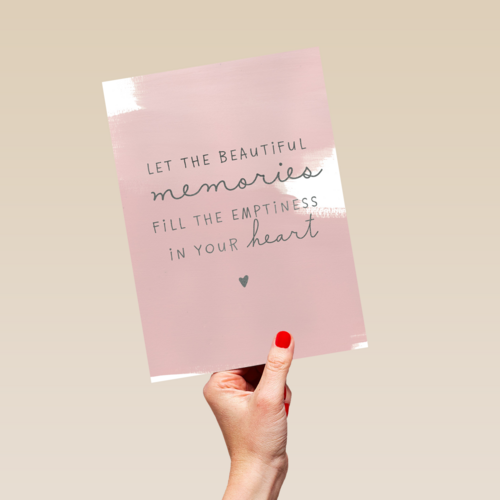 LET THE BEAUTiFUL
memories
FiLL THE EMPTiNESS
iN YOUR heart